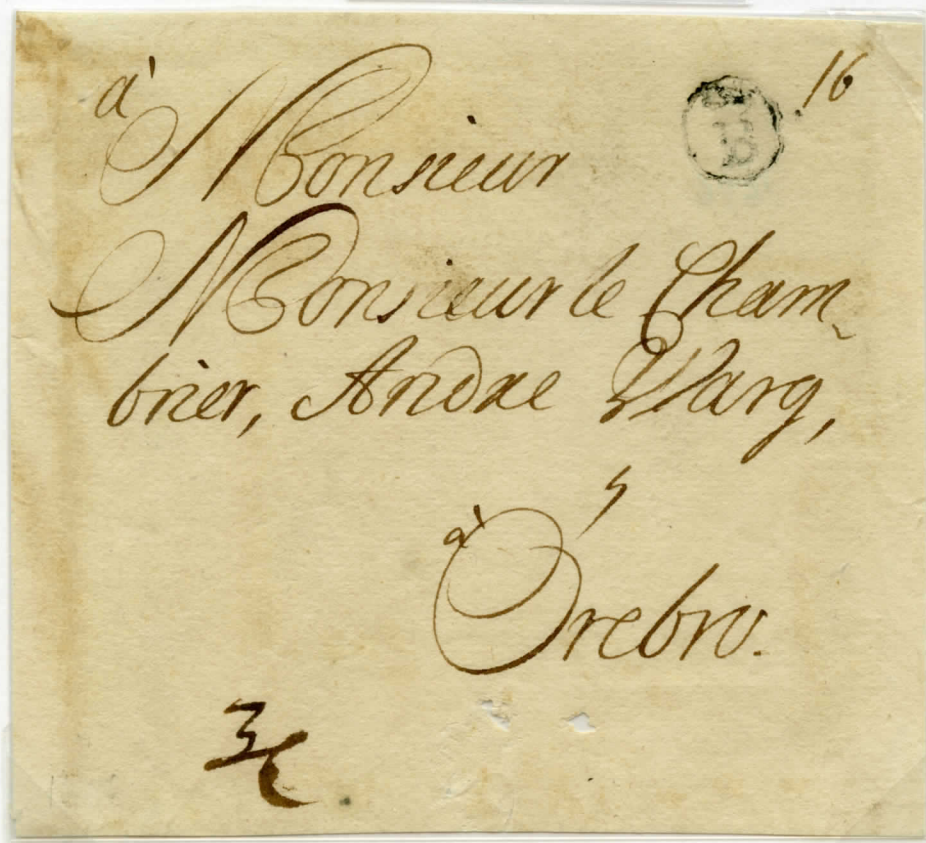 16
à
Monsieur
Monsieur le Cham-
brier, Andre Warg,
à
Örebro.